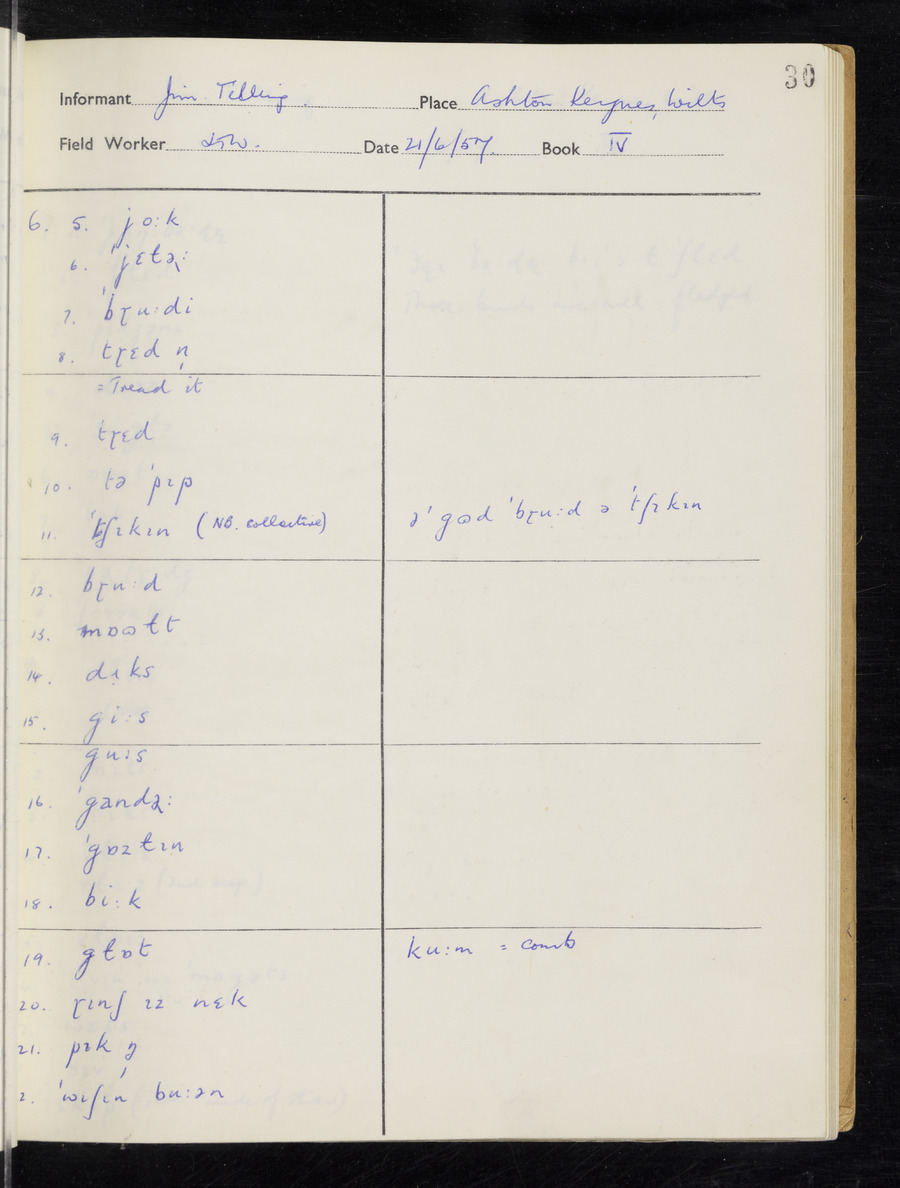 30
Informant Jim Telling. Place Ashton Keynes, Wilts
Field Worker Date 21/6/57. Book IV
6. 5. joːk
6. ˈjɛtəɽː
7. ˈbɽuːdi
8. tɽɛd n̩
= Tread it
9. tɽɛd
10. tə ˈpɪp
11. ˈtʃɪkɪn (NB. collective) ə ˈgɷd ˈbɽuːd ə ˈtʃɪkɪn
12. bɽuːd
13. mɒɷɫt
14. dʌ̣ks
15. giːs
guːs
16. ˈgandəɽː
17. ˈgɒzɫɪn
18. biːk
19. gɫɒt kuːm = comb
20. ɽɪnʃ ɪz nɛk
21. pɪk ŋ̩
2. ˈwɪʃɪn buːən